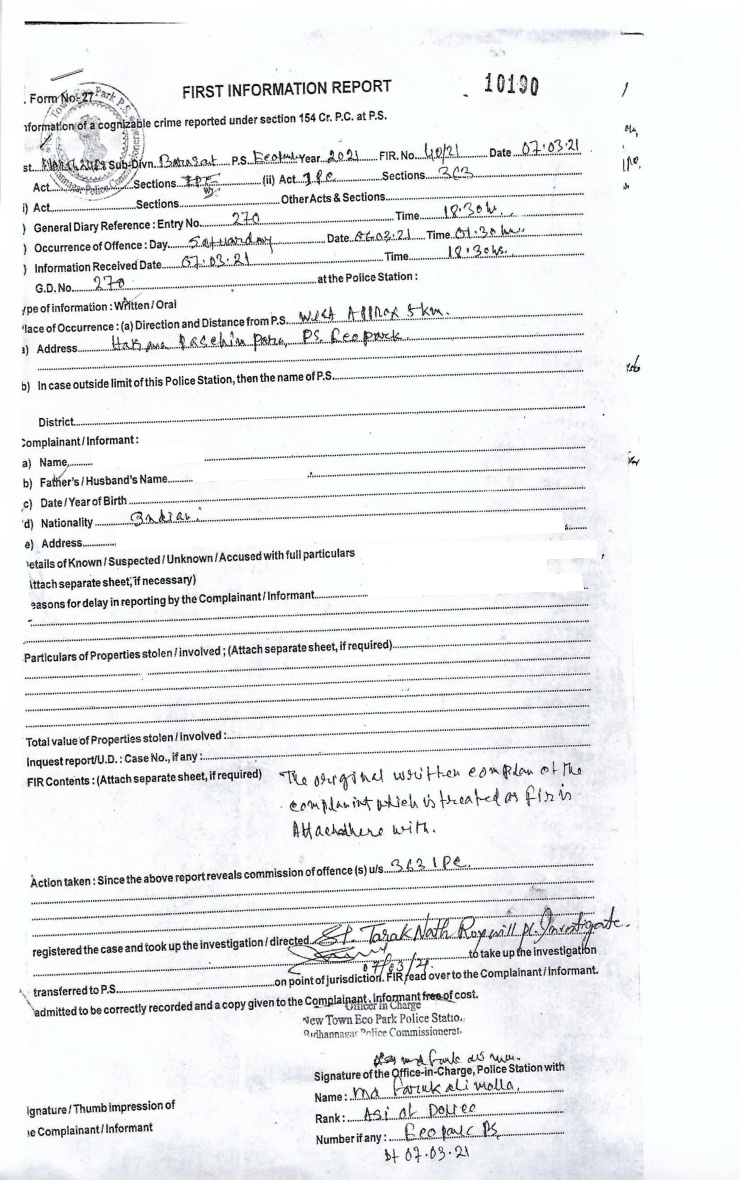 FIRST INFORMATION REPORT
10190
. Form No. 27
nformation of a cognizable crime reported under section 154 Cr. P.C. at P.S.
st. Sub-Divn. Barasat P.S. Ecopark Year 2021 FIR. No. 40/21 Date 07.03.21
Act Sections IPC (ii) Act IPC Sections 363
i) Act Sections Other Acts & Sections
) General Diary Reference : Entry No. 270 Time 18.30 hr.
) Occurrence of Offence : Day Satuarday Date 06.03.21 Time 01.30 hrs.
) Information Received Date 07.03.21 Time 18.30 hrs.
G.D. No. 270 at the Police Station :
ype of information : Written / Oral
lace of Occurrence : (a) Direction and Distance from P.S. West Approx 5 km.
a) Address Paschim Para, PS. Ecopark
b) In case outside limit of this Police Station, then the name of P.S.
District
Complainant / Informant :
a) Name,
b) Father's / Husband's Name
c) Date / Year of Birth
d) Nationality Indian.
e) Address
etails of Known / Suspected / Unknown / Accused with full particulars
Attach separate sheet, if necessary)
easons for delay in reporting by the Complainant / Informant
Particulars of Properties stolen / involved ; (Attach separate sheet, if required)
Total value of Properties stolen / involved :
Inquest report/U.D. : Case No., if any :
FIR Contents : (Attach separate sheet, if required) The original written complan of the
complainint which is treated as fir is
Attached here with.
Action taken : Since the above report reveals commission of offence (s) u/s 363 IPC.
registered the case and took up the investigation / directed SI. Tarak Nath Roy will pl. Investigate.
to take up the investigation
07/03/21.
transferred to P.S. on point of jurisdiction. FIR read over to the Complainant / Informant.
admitted to be correctly recorded and a copy given to the Complainant. Informant free of cost.
Officer In Charge
New Town Eco Park Police Statio.
Bidhannagar Police Commissionerat.
Signature of the Office-in-Charge, Police Station with
Name : Md Faruk ali molla.
ignature / Thumb impression of
Rank : ASI of Police
he Complainant / Informant
Number if any : Ecopark PS,
Dt 07.03.21